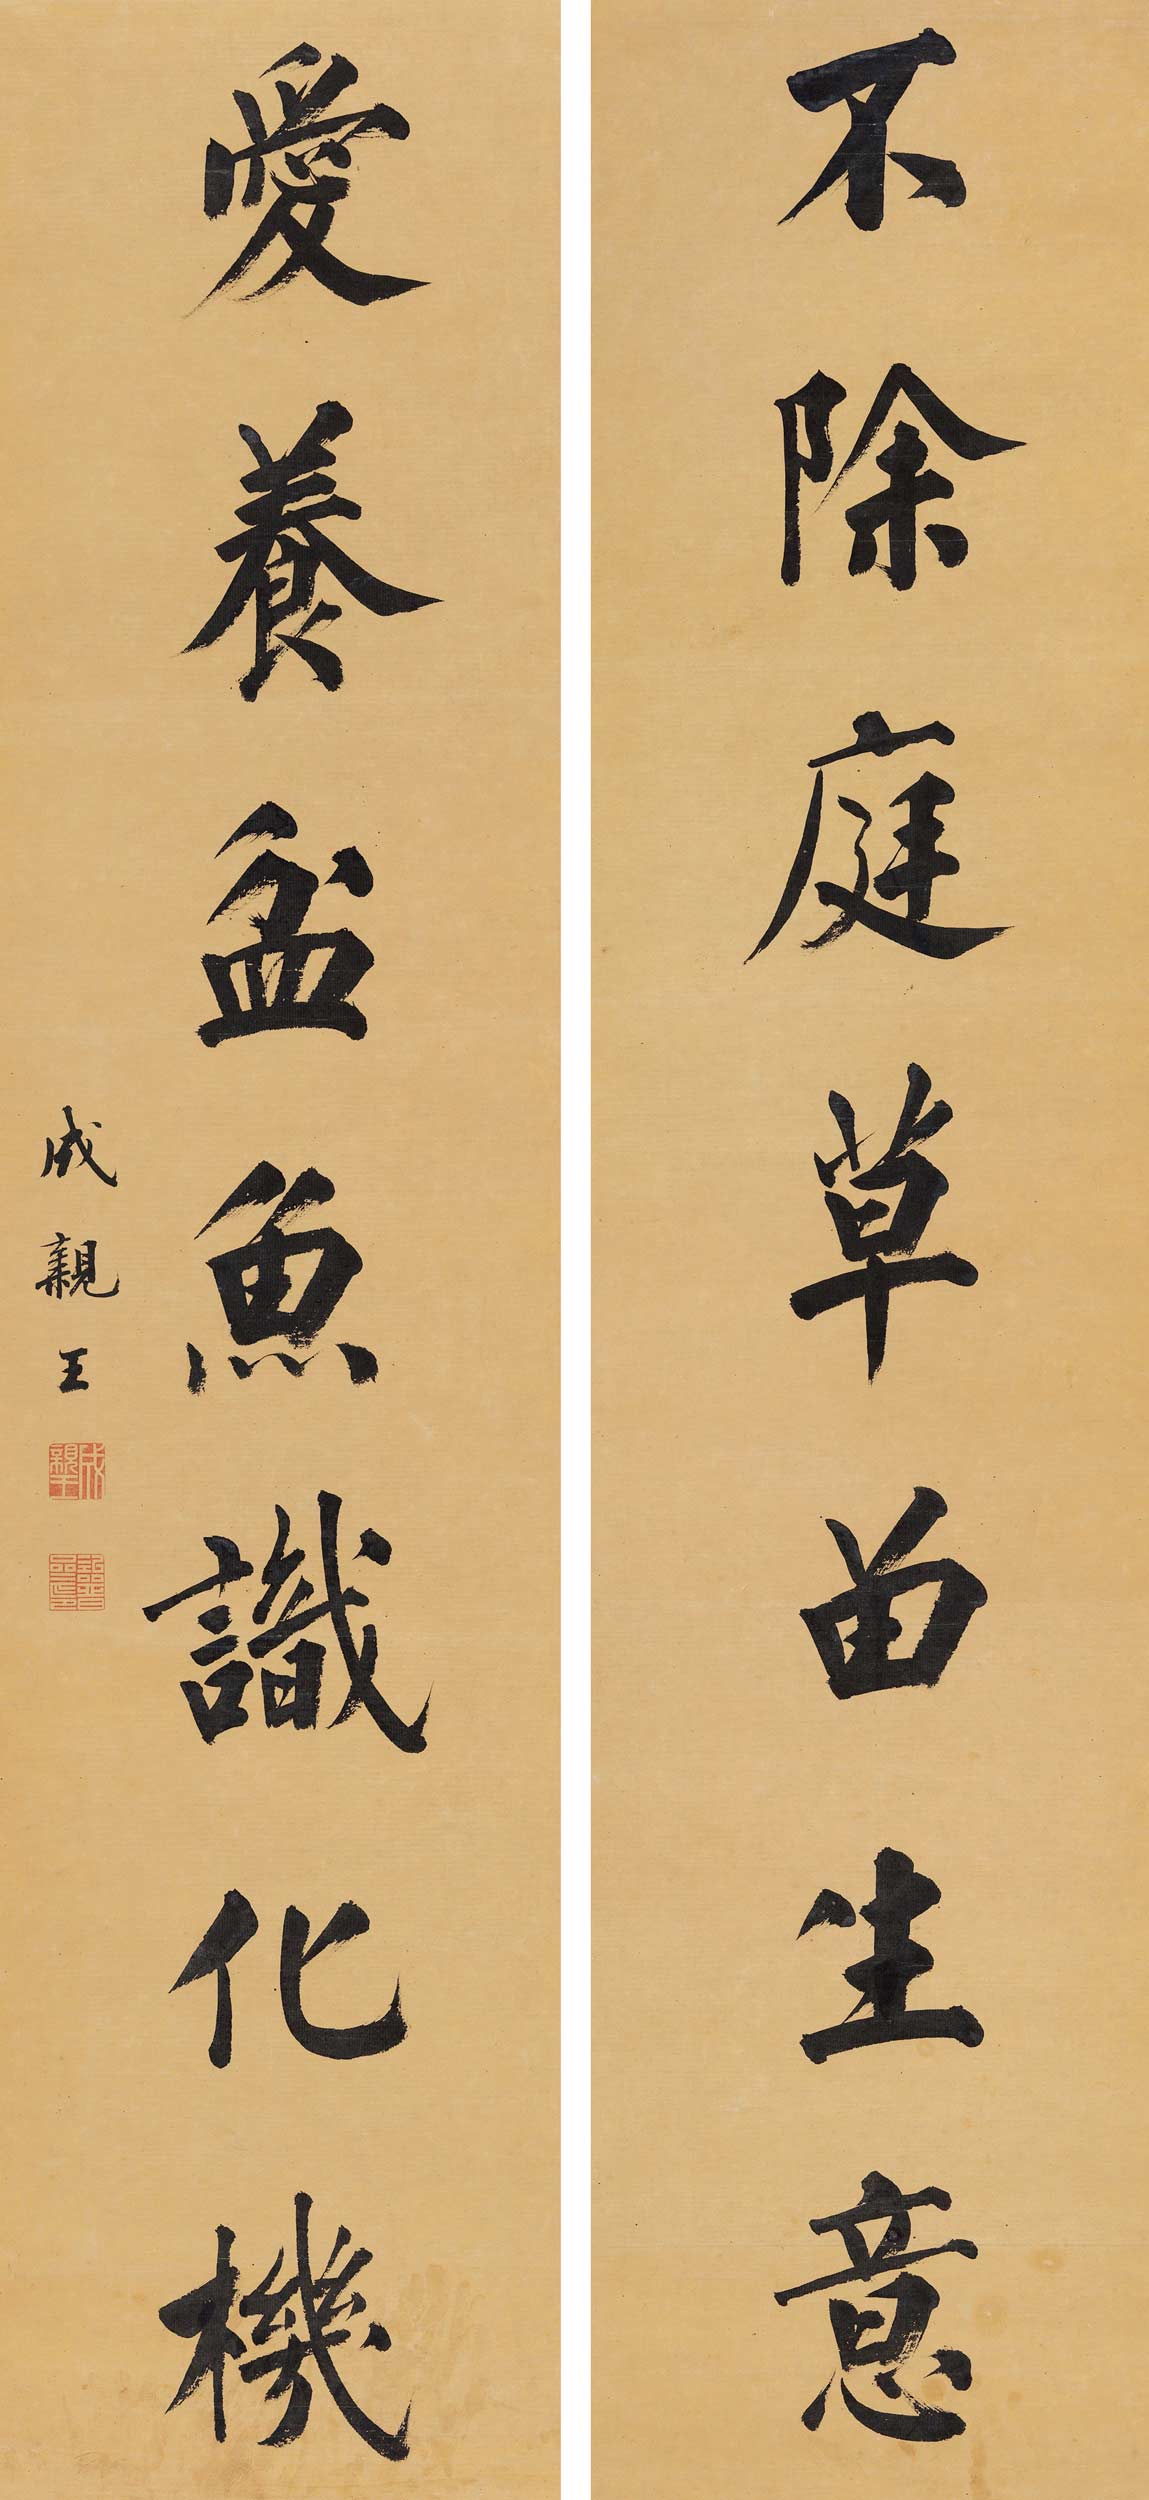 不除庭草留生意
愛養盆魚識化機
成親王
成親王
詒晉齋印